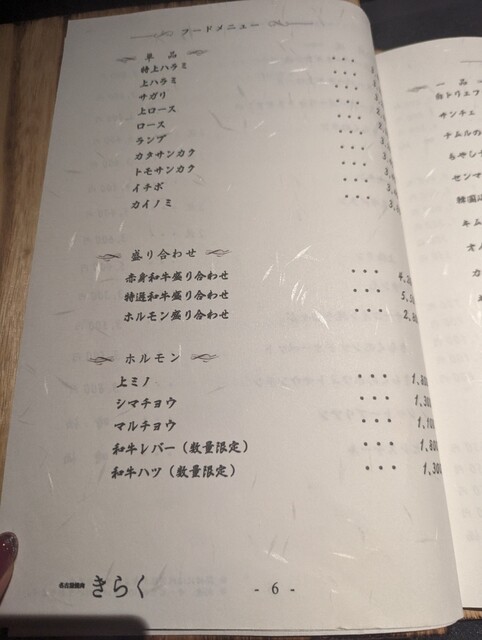 フードメニュー
単品
特上ハラミ ・・・
上ハラミ ・・・
サガリ ・・・
上ロース ・・・
ロース ・・・
ランプ ・・・
カタサンカク ・・・
トモサンカク ・・・
イチボ ・・・
カイノミ ・・・
盛り合わせ
赤身和牛盛り合わせ ・・・ 4,
特選和牛盛り合わせ ・・・ 5,
ホルモン盛り合わせ ・・・ 2,8
ホルモン
上ミノ ・・・ 1,80
シマチョウ ・・・ 1,30
マルチョウ ・・・ 1,10
和牛レバー(数量限定) ・・・ 1,80
和牛ハツ(数量限定) ・・・ 1,30
きらく
- 6 -
一品
サンチェ
ナムルの
もやし
センマ
韓国
キム